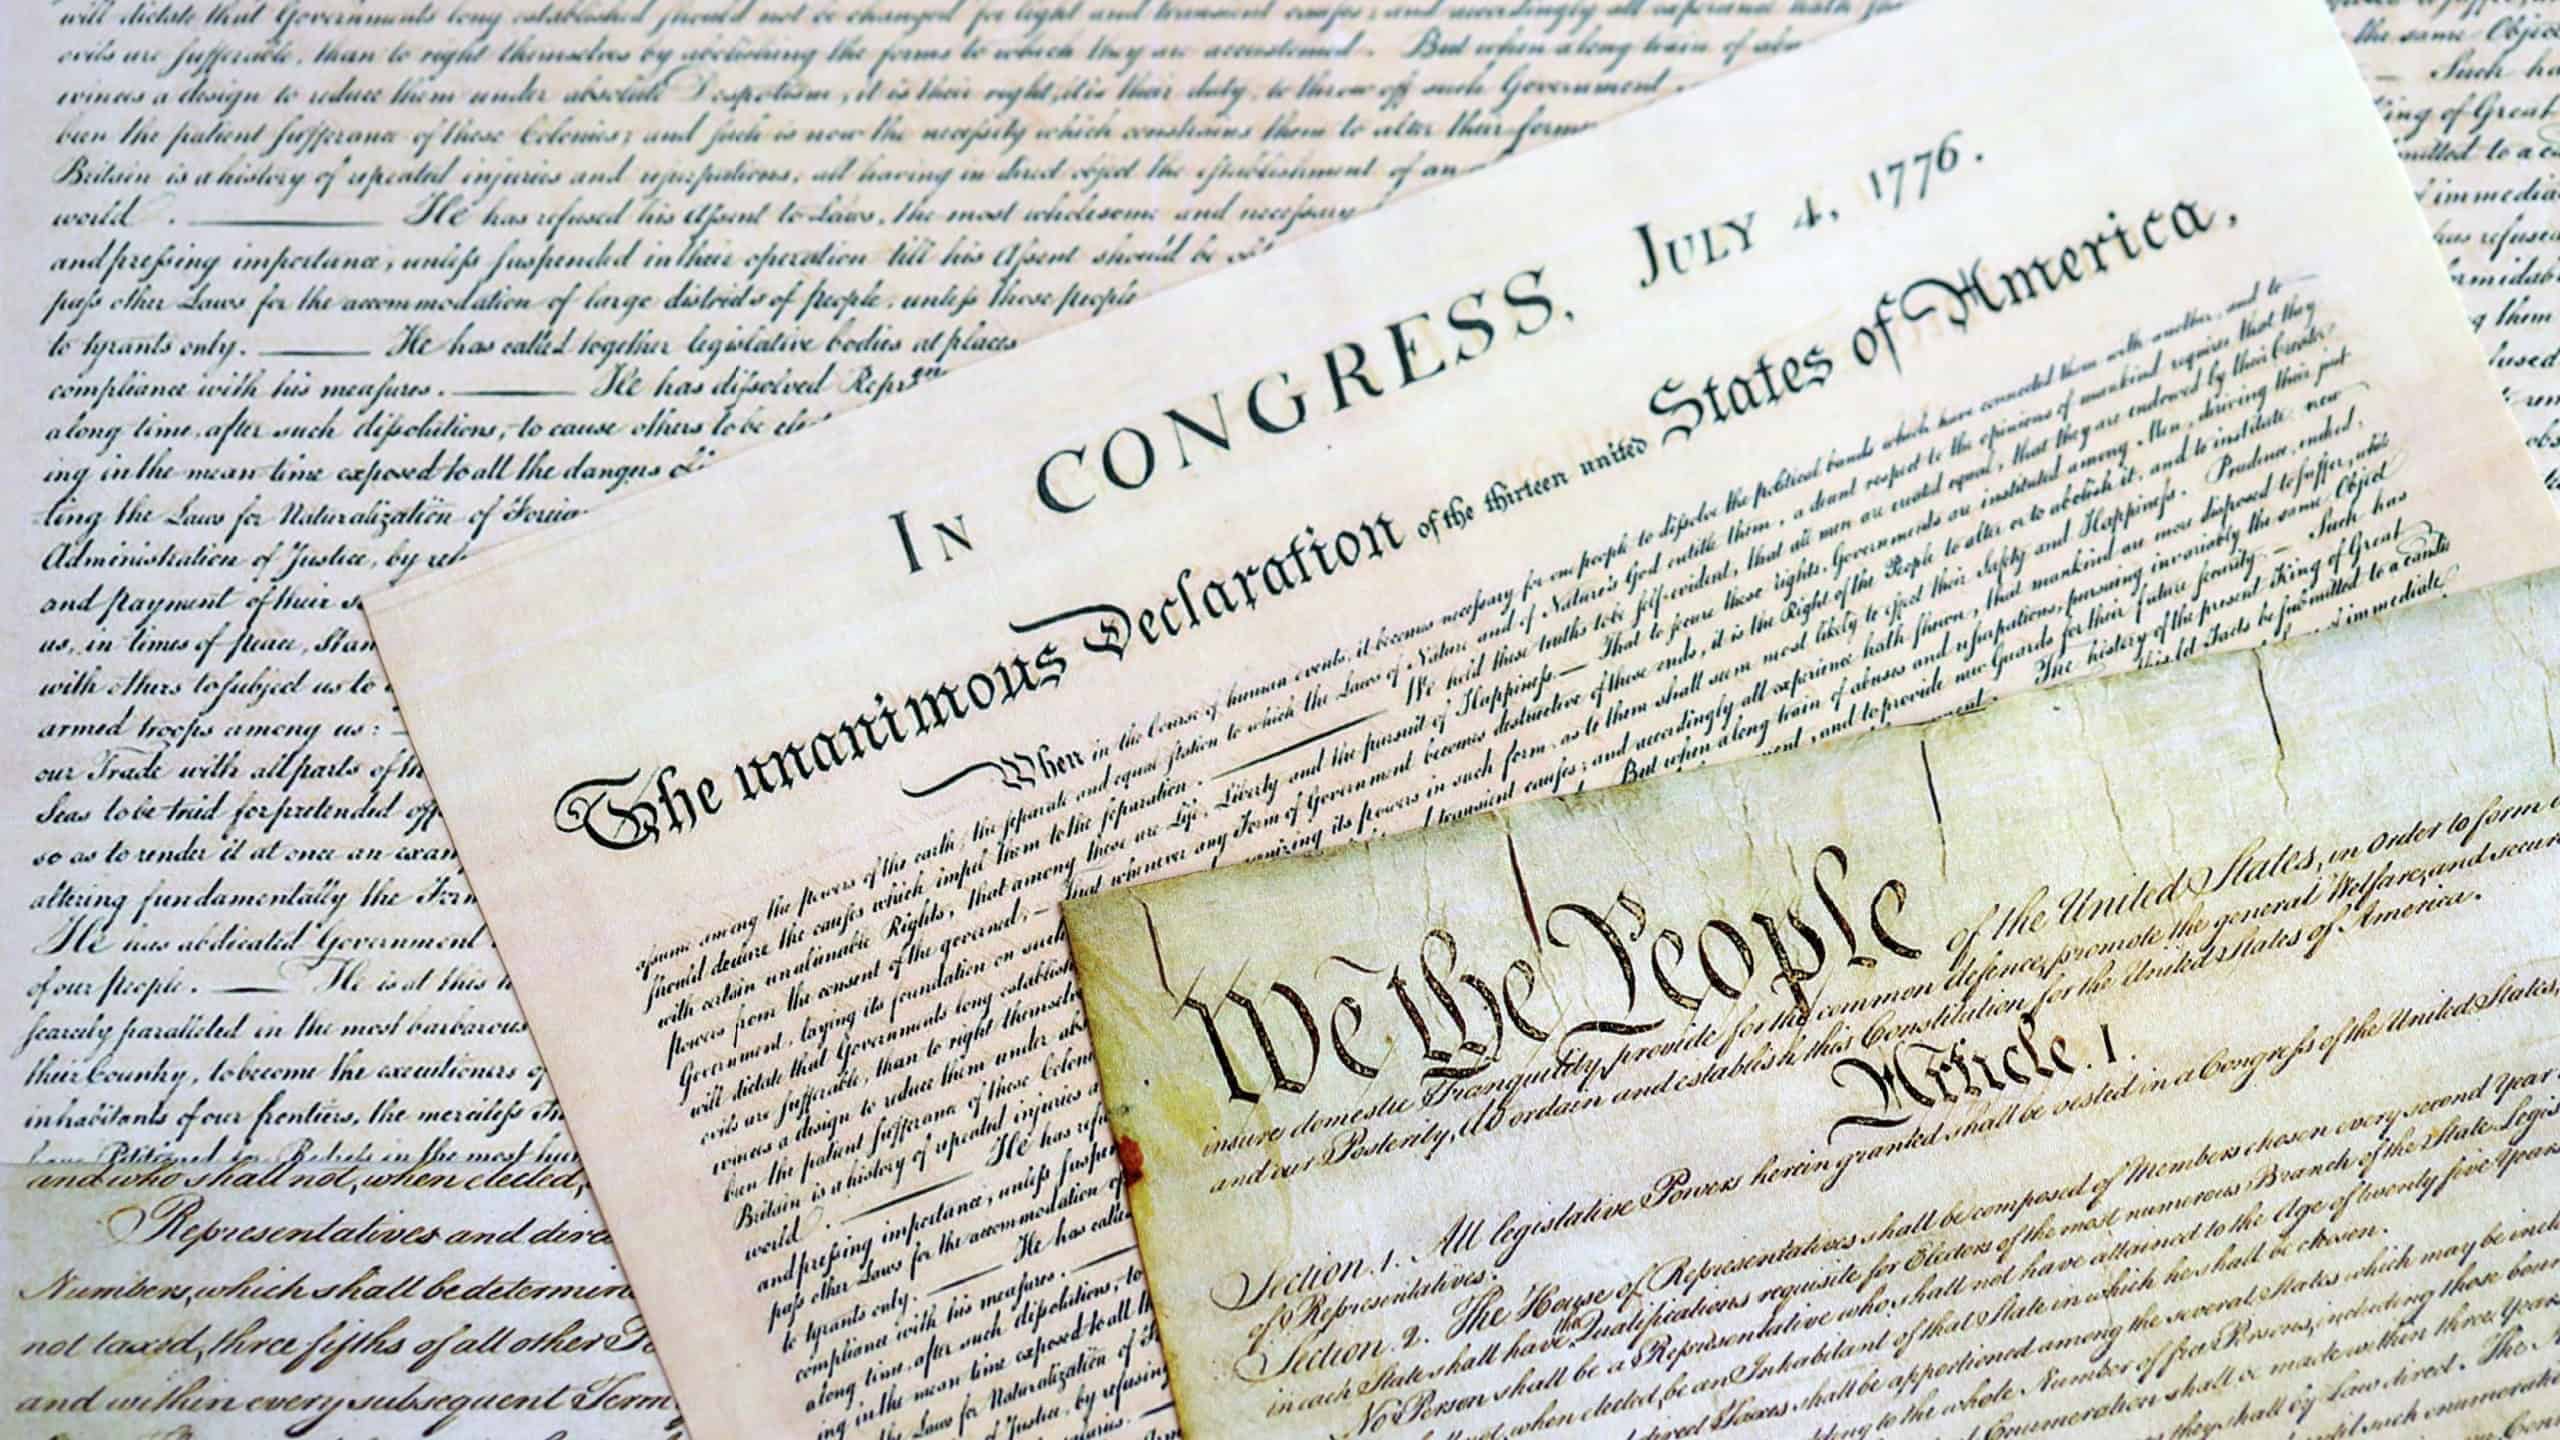 will dictate that Governments long established should not be changed for light and transient causes; and accordingly all experience hath
evils are sufferable, than to right themselves by abolishing the forms to which they are accustomed. But when a long train of
winces a design to reduce them under absolute Despotism, it is their right, it is their duty, to throw off such Government
been the patient sufferance of these Colonies; and such is now the necessity which constrains them to alter their former
Britain is a history of repeated injuries and usurpations, all having in direct object the establishment of an
world. He has refused his Assent to Laws, the most wholesome and necessary
and pressing importance, unless suspended in their operation till his Assent should be
pass other Laws for the accommodation of large districts of people, unless those people
to tyrants only. He has called together legislative bodies at places
compliance with his measures. He has dissolved
along time, after such dissolutions, to cause others to be
ing in the mean time exposed to all the dangers
ting the Laws for Naturalization of
Administration of Justice, by
and payment of their
us, in times of peace,
with others to subject us to
armed troops among us:
our Trade with all parts of
Seas to be tried for pretended
so as to render it at once an
altering fundamentally the
He has abdicated Government
of our people. He is at this
scarcely paralleled in the most barbarous
their Country, to become the executioners of
inhabitants of our frontiers, the merciless
have Petitioned for Redress in the most
and who shall not, when elected,
Representatives and
Numbers, which shall be
not taxed, three fifths of all other
and within every subsequent Term
the same Object
Such
King of Great
to a
immediate
refused
them
IN CONGRESS, JULY 4, 1776.
The unanimous Declaration of the thirteen united States of America,
When in the Course of human events, it becomes necessary for one people to dissolve the political bands which have connected them with another, and to
assume among the powers of the earth, the separate and equal station to which the Laws of Nature and of Nature's God entitle them, a decent respect to the opinions of mankind requires that they
should declare the causes which impel them to the separation. We hold these truths to be self-evident, that all men are created equal, that they are endowed by their Creator
with certain unalienable Rights, that among these are Life, Liberty and the pursuit of Happiness.— That to secure these rights, Governments are instituted among Men, deriving their just
powers from the consent of the governed,— That whenever any Form of Government becomes destructive of these ends, it is the Right of the People to alter or to abolish it, and to institute new
Government, laying its foundation on such organizing its powers in such form, as to them shall seem most likely to effect their Safety and Happiness. Prudence, indeed,
will dictate that Governments long established transient causes; and accordingly all experience hath shewn, that mankind are more disposed to suffer, while
evils are sufferable, than to right themselves But when a long train of abuses and usurpations, pursuing invariably the same Object
winces a design to reduce them under and to provide new Guards for their future security.— Such has
been the patient sufferance of these The history of the present King of Great
Britain is a history of repeated injuries submitted to a candid
world. He has immediate
and pressing importance, unless
pass other Laws for the accommodation of
to tyrants only. He has called
compliance with his measures.
along time, after such dissolutions, to
ing in the mean time exposed to all
the Laws for Naturalization of
of Justice, by refusing
We the People of the United States, in Order to form
insure domestic Tranquility, provide for the common defence, promote the general Welfare, and secure
and our Posterity, do ordain and establish this Constitution for the United States of America.
Article. I.
Section. 1. All legislative Powers herein granted shall be vested in a Congress of the United States,
of Representatives.
Section. 2. The House of Representatives shall be composed of Members chosen every second Year
in each State shall have the Qualifications requisite for Electors of the most numerous Branch of the State
No Person shall be a Representative who shall not have attained to the Age of twenty five Years
not, when elected, be an Inhabitant of that State in which he shall be chosen.
direct Taxes shall be apportioned among the several States which may be
to the whole Number of free Persons, including those
Enumeration shall be made within three Years
they shall by Law direct. The
until such enumeration